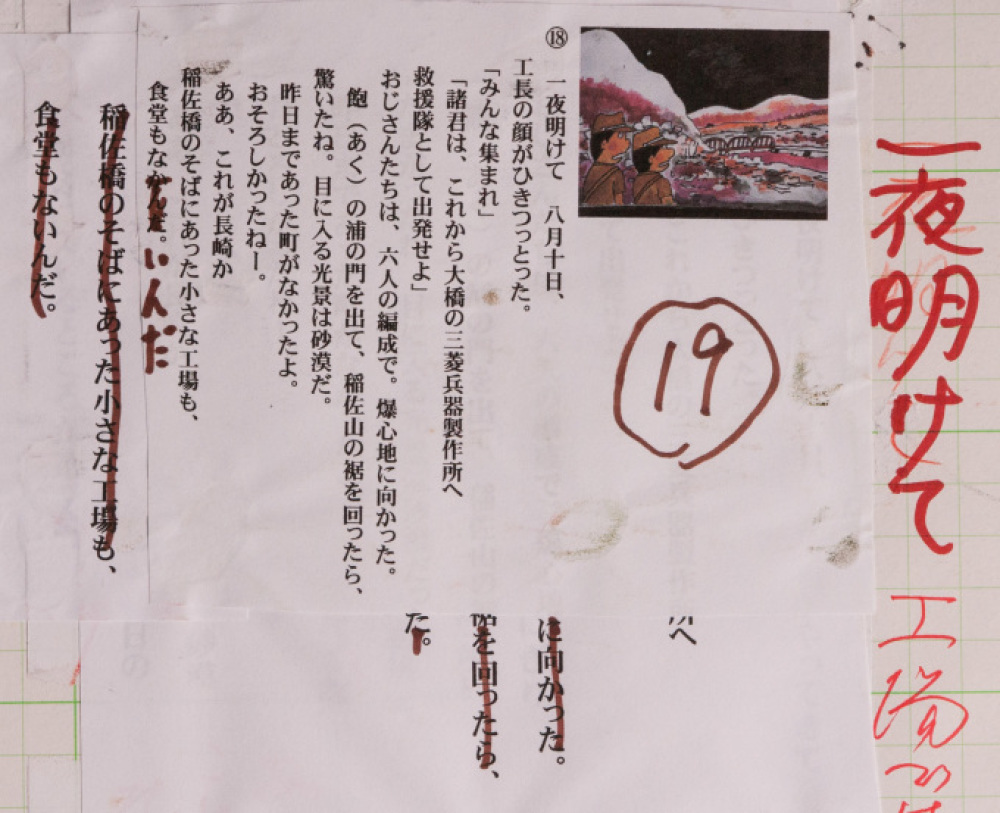 一夜明けて
工場
⑱
一夜明けて 八月十日、
工長の顔がひきつっとった。
「みんな集まれ」
「諸君は、これから大橋の三菱兵器製作所へ
救援隊として出発せよ」
おじさんたちは、六人の編成で。爆心地に向かった。
飽(あく)の浦の門を出て、稲佐山の裾を回ったら、
驚いたね。目に入る光景は砂漠だ。
昨日まであった町がなかったよ。
おそろしかったねー。
ああ、これが長崎か
稲佐橋のそばにあった小さな工場も、
食堂もなかんだ。
いんだ
稲佐橋のそばにあった小さな工場も、
食堂もないんだ。
19
へ
に向かった。
を回ったら、
た。